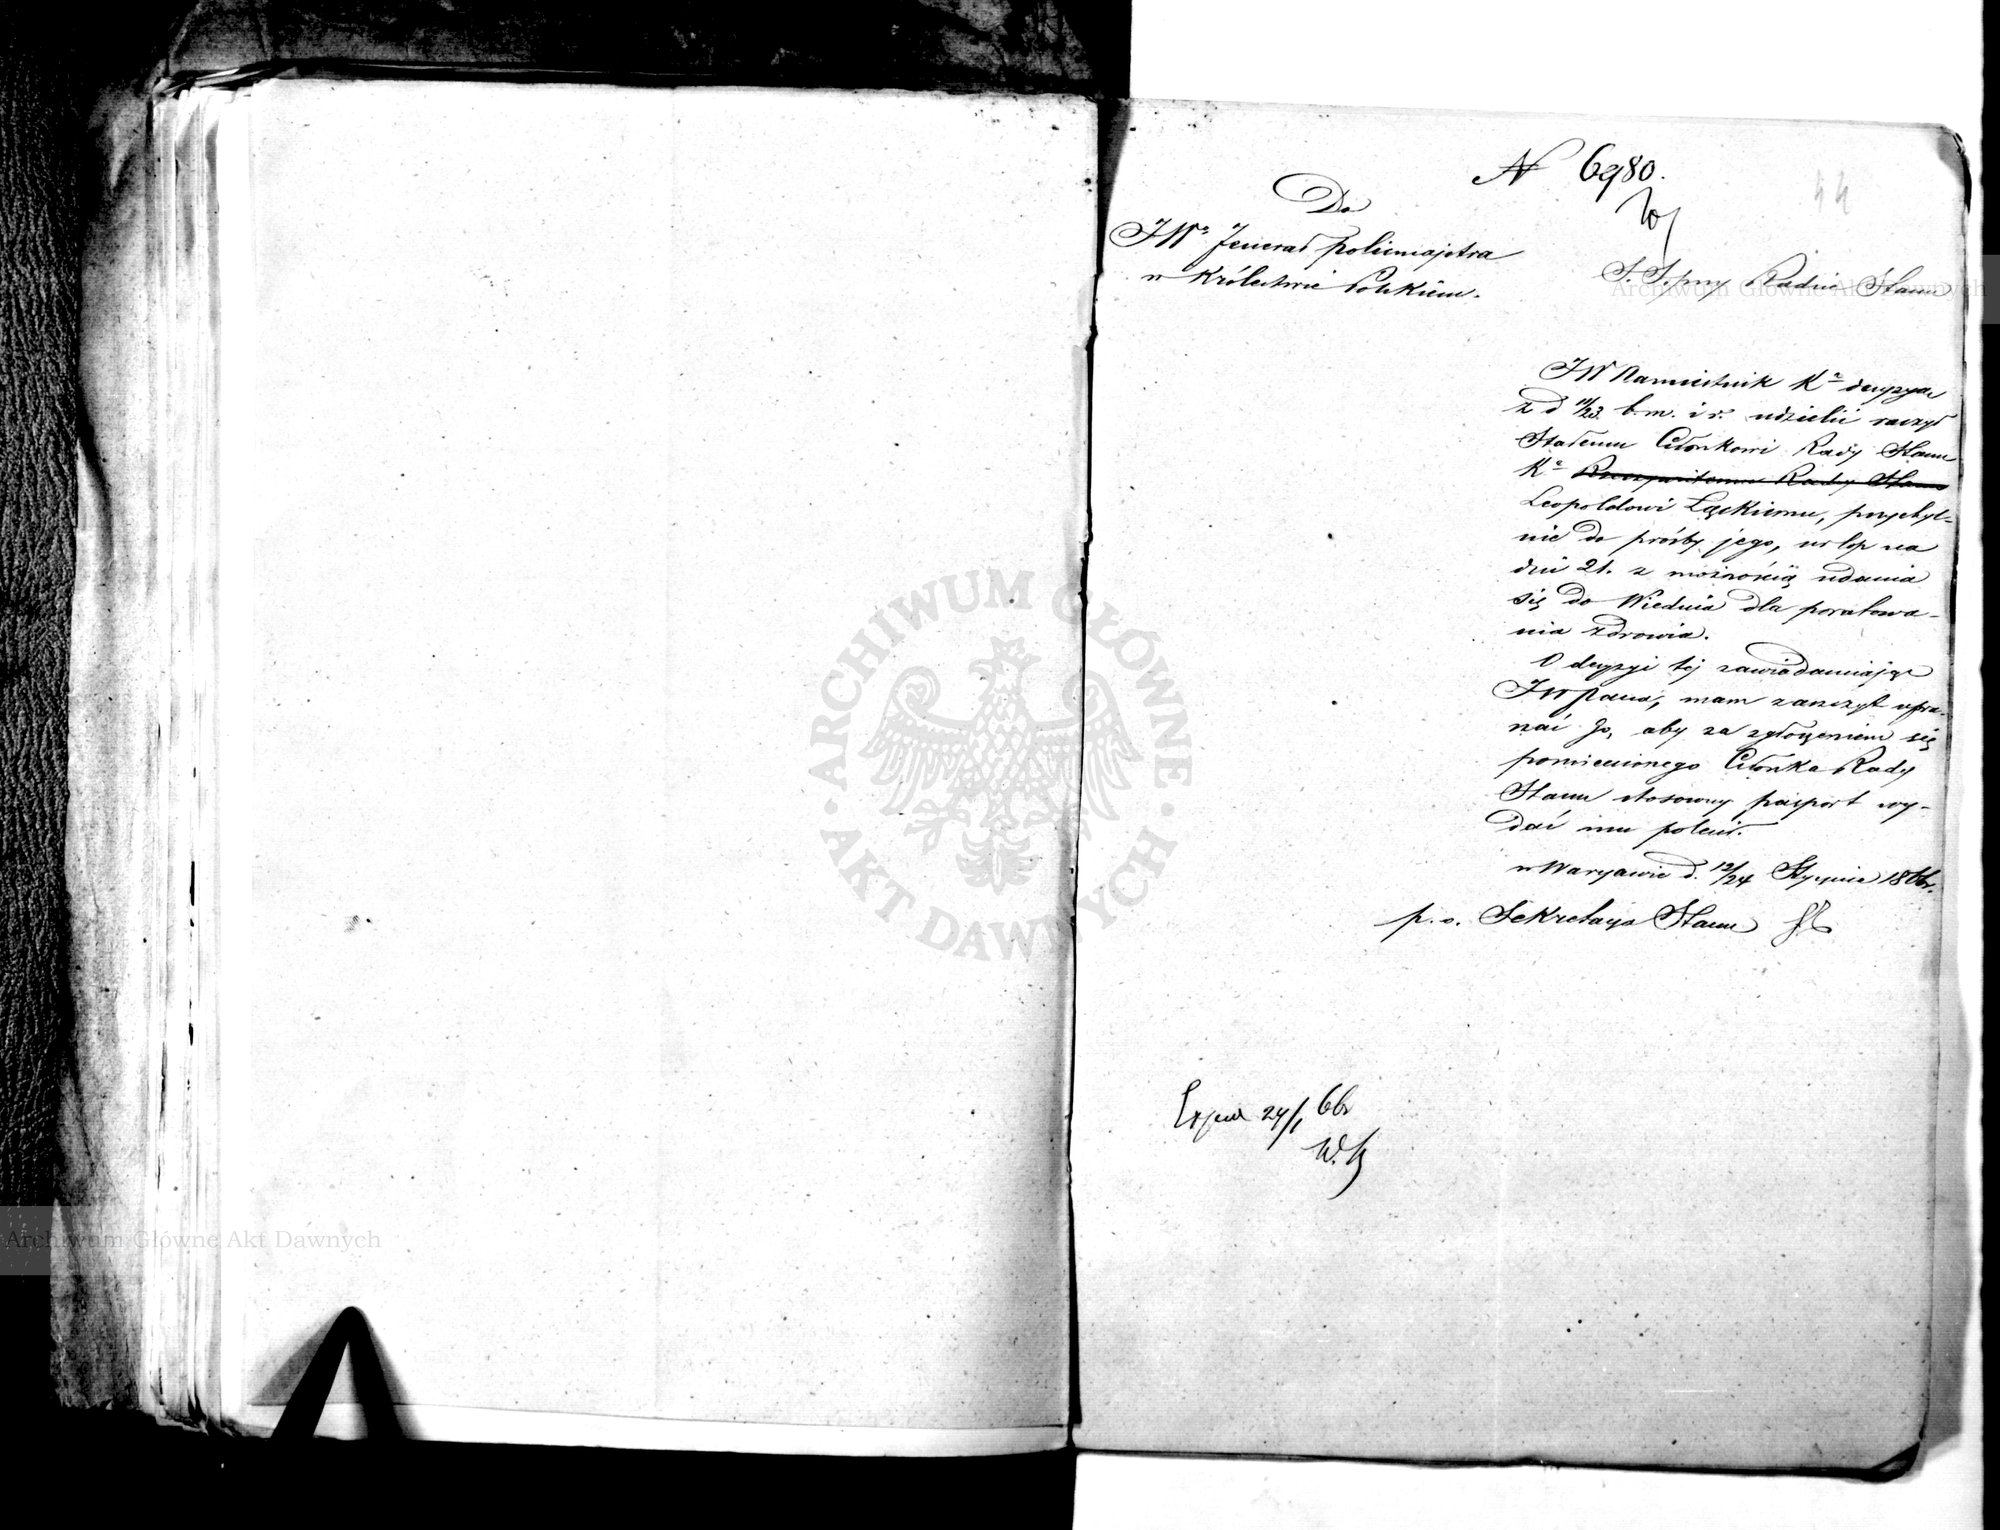 N 6980.
44
Do
JWo Jenerał policmajstra
w Królestwie Polskiem.
S. S. przy Radzie Stanu
JW Namiestnik Ka decyzyą
z d 11/23 b. m. i r. udzielić raczył
Stałemu Członkowi Rady Stanu
Ka Rady Stanu
Leopoldowi Łąckiemu, przychyl-
nie do prośby jego, urlop na
dni 21. z możnością udania
się do Wiednia dla poratowa-
nia zdrowia.
O decyzyi tej zawiadamiając
JW Pana, mam zaszczyt upra-
szać Go, aby za zgłoszeniem się
pomienionego Członka Rady
Stanu stosowny paszport wy-
dać mu polecił.
w Warszawie d. 12/24 Stycznia 1866 r.
p. o. Sekretarza Stanu
Exped 24/1 66
W. K
ARCHIWUM GŁÓWNE
AKT DAWNYCH
Archiwum Główne Akt Dawnych
Archiwum Główne Akt Dawnych